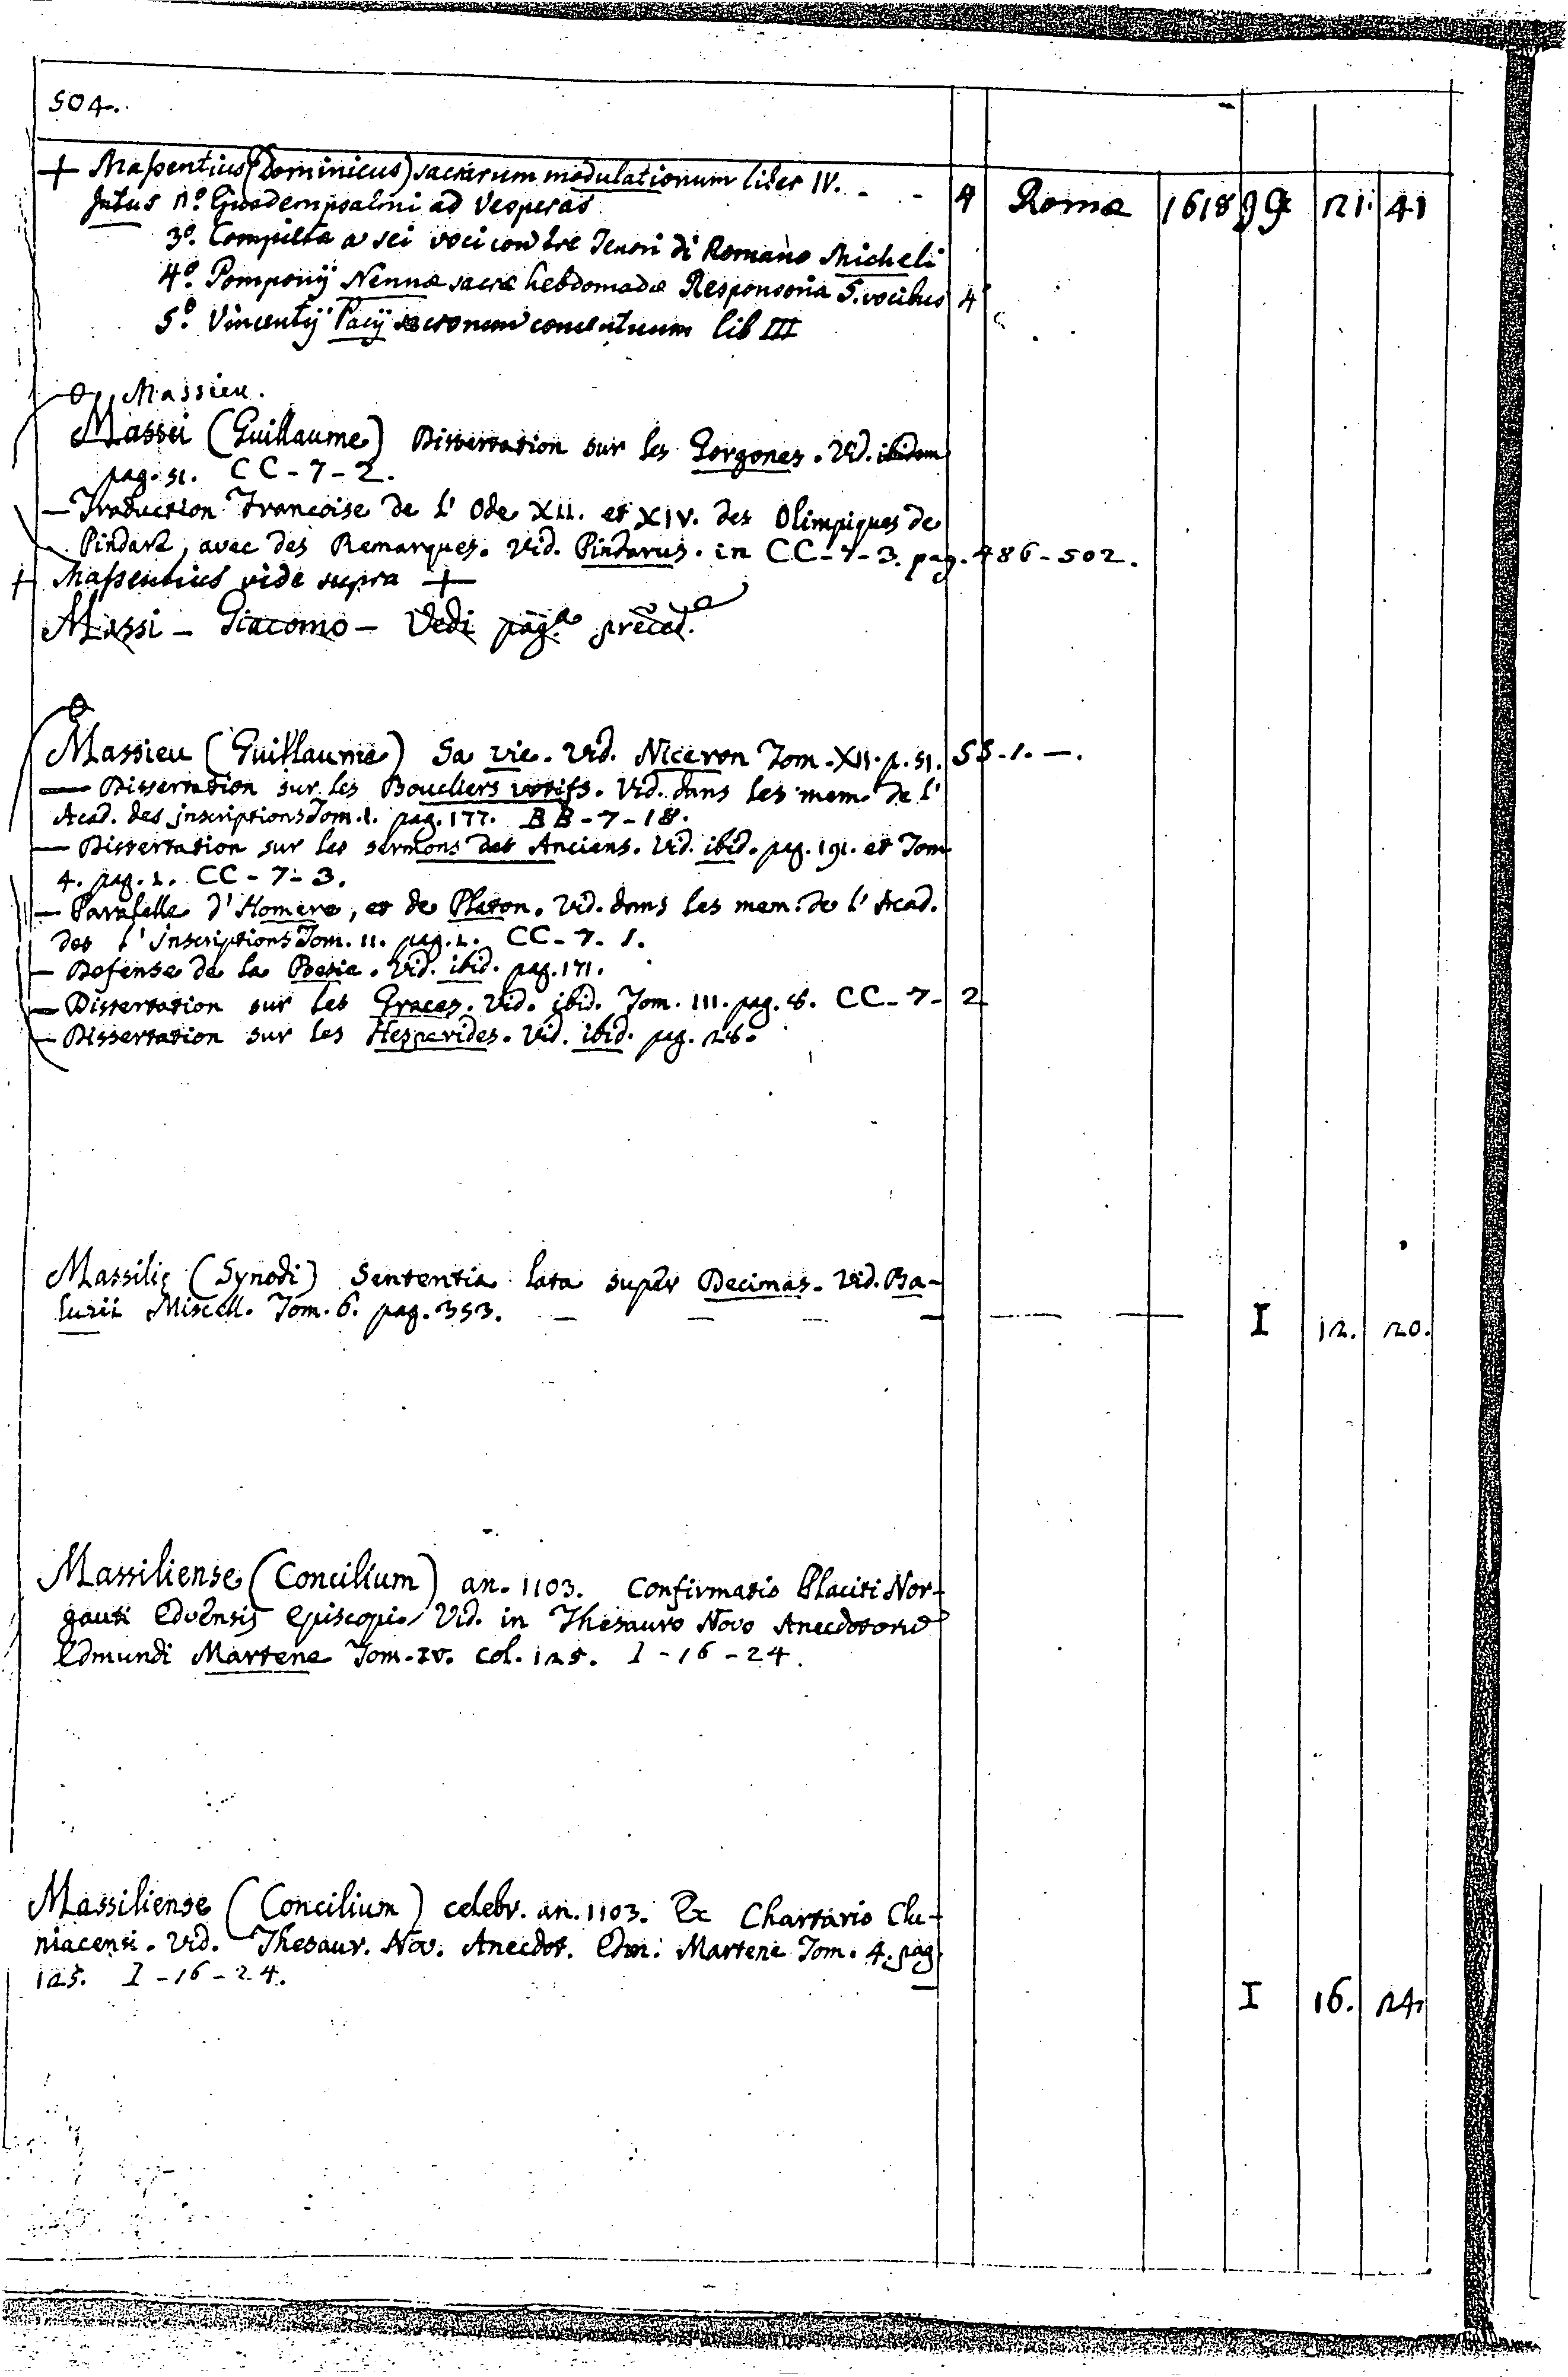 504.
+ Massentius (Dominicus) sacrarum modulationum liber IV. - - 4 Romæ 1618 21. 41
Intus 2º. Eiusdem psalmi ad Vesperas
3º. Compieta a sei voci con tre Tenori di Romano Micheli
4º. Pomponij Nennæ sacræ hebdomadæ Responsoria 5. vocibus 4º
5º. Vincentij Pacij sacrorum concentuum lib III
Massieu.
Massei (Guillaume) Dissertation sur les Gorgones. Vid. ibidem
pag. 51. CC-7-2.
— Traduction Francoise de l' Ode XII. et XIV. des Olimpiques de
Pindare, avec des Remarques. Vid. Pindarus. in CC-7-3. pag. 486-502.
+ Massentius vide supra +
Massi - Giacomo - Vedi pag.ª preced.ª
Massieu (Guillaume) Sa vie. Vid. Niceron Tom. XII. p. 51. SS-1. —.
— Dissertation sur les Boucliers votifs. Vid. dans les mem. de l'
Acad. des jnscriptions Tom. 1. pag. 177. BB-7-18.
— Dissertation sur les sermons des Anciens. Vid. ibid. pag. 191. et Tom.
4. pag. 1. CC-7-3.
— Paralelle d'Homere, et de Platon. Vid. dans les mem. de l' Acad.
des l' jnscriptions Tom. 11. pag. 1. CC-7-1.
— Defense de la Poesie. Vid. ibid. pag. 171.
— Dissertation sur les Graces. Vid. ibid. Tom. III. pag. 8. CC-7-2
— Dissertation sur les Hesperides. Vid. ibid. pag. 28.
Massilię (Synodi) Sententia lata super Decimas. Vid. Ba-
luzii Miscell. Tom. 6. pag. 353. — — — — — — I 12. 20.
Massiliense (Concilium) an. 1103. Confirmatio Placiti Nor-
gauti Eduensis episcopi. Vid. in Thesauro Novo Anecdotorum
Edmundi Martene Tom. IV. col. 125. I-16-24.
Massiliense (Concilium) celebr. an. 1103. Ex Chartario Clu-
niacensi. Vid. Thesaur. Nov. Anecdot. Edm. Martene Tom. 4. pag.
125. I-16-24. — I 16. 24.